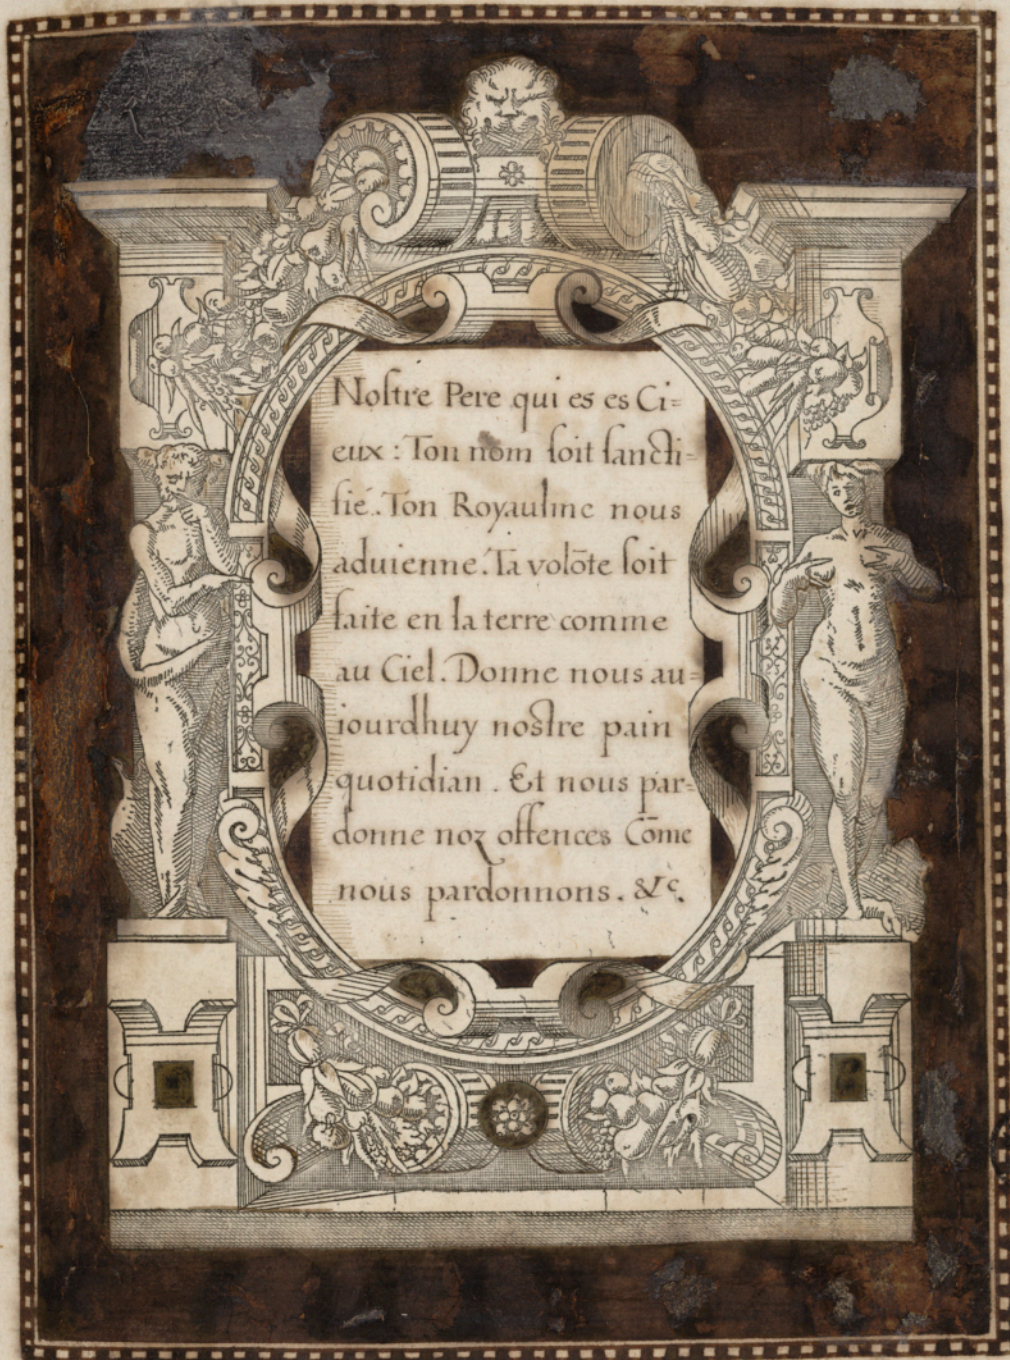 Noſtre Pere qui es es Ci=
eux : Ton nom ſoit ſancti=
fié. Ton Royaulme nous
aduienne. Ta volōte ſoit
faite en la terre comme
au Ciel. Donne nous au=
iourdhuy noſtre pain
quotidian . Et nous par=
donne noz offences Cōme
nous pardonnons . &c.